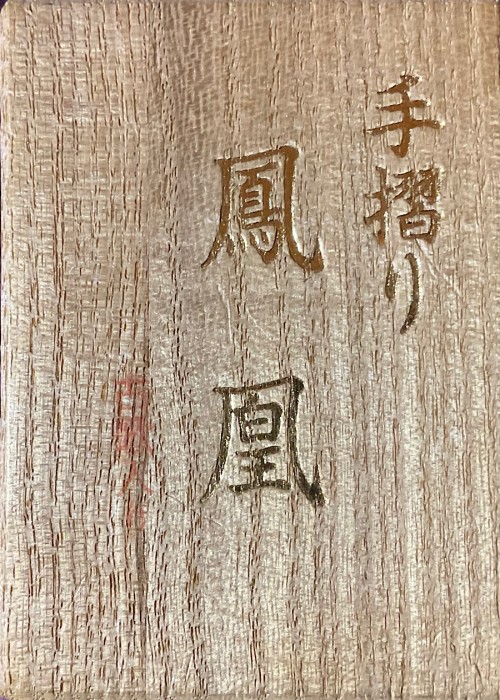 手摺り
鳳凰